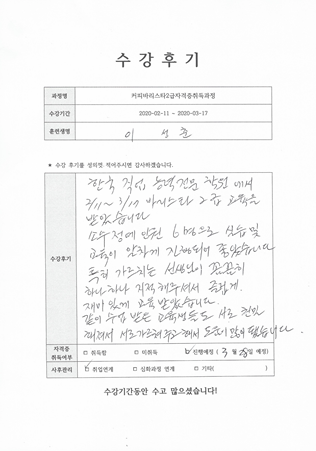 수 강 후 기
과정명 커피바리스타2급자격증취득과정
수강기간 2020-02-11 ~ 2020-03-17
훈련생명 이 선 춘
* 수강 후기를 성의껏 적어주시면 감사하겠습니다.
수강후기
한국 직업능력전문 학원에서
2/11 ~ 3/17 바리스타 2급 교육을
받았습니다
소수정예 인원 6명으로 실습 및
교육이 알차게 진행되어 좋았습니다
특히 가르치는 선생님이 꼼꼼히
하나하나 지적해주셔서 즐겁게.
재미있게 교육 받았습니다.
같이 수업 받은 교육생들도 서로
해서 서로 가르쳐주고 해서 도움이 많이 됐습니다.
자격증
취득여부 □ 취득함 □ 미취득 ☑ 진행예정 ( 3 월 28일 예정)
사후관리 ☑ 취업연계 □ 심화과정 연계 □ 기타( )
수강기간동안 수고 많으셨습니다!